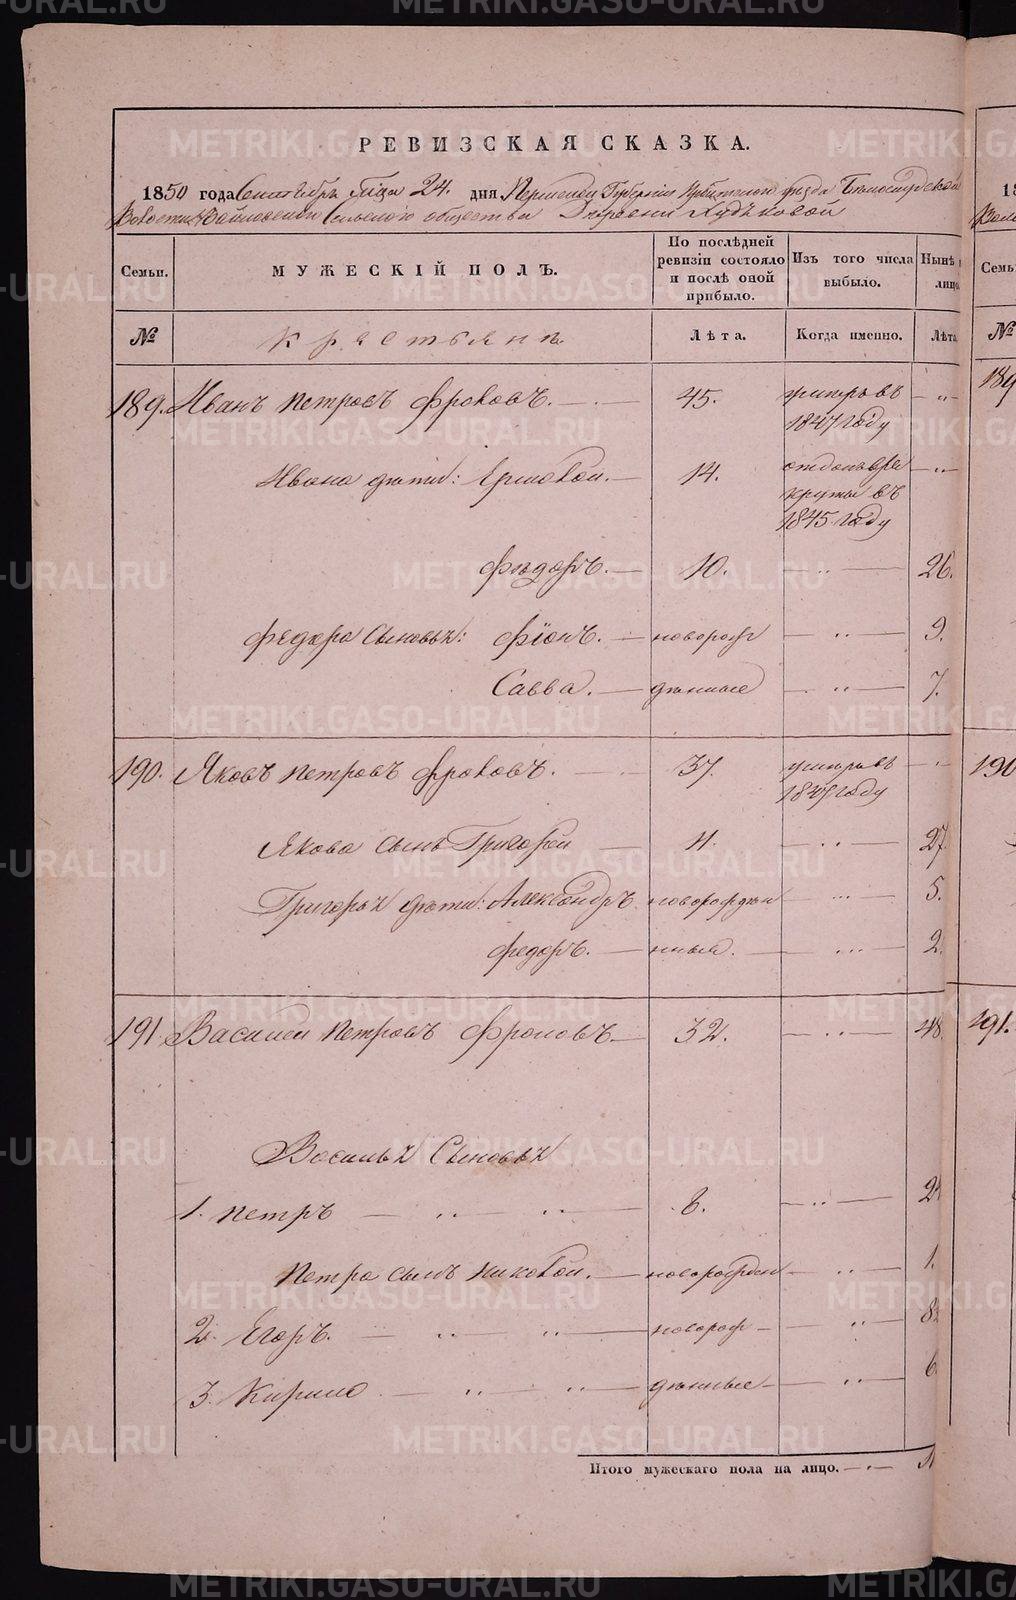 РЕВИЗСКАЯ СКАЗКА.
1850 года Сентября м-ца 24. дня Пермской Губернiи Ирбитского уѣзда Бѣлослудской
Волости Сельского общества Деревни Худяковой
Семьи. МУЖЕСКIЙ ПОЛЪ. По послѣдней ревизiи состояло и послѣ оной прибыло. Изъ того числа выбыло. Нынѣ лицо
№ Крестьяне Лѣта. Когда именно. Лѣта
189. Иванъ Петровъ Фроловъ. 45. умеръ въ 1847 году
Ивана дѣти: Ермолай. 14. отданъ въ рекруты въ 1845 году
Фёдоръ. 10. 26.
Федора сыновья: Фiонъ. новорож 9.
Савва. дѣнные 7.
190. Яковъ Петровъ Фроловъ. 37. умеръ въ году
Якова сынъ Григорей 11. 27.
Григорья дѣти: Александръ новорождѣн 5.
Федоръ. ные. 2.
191. Василей Петровъ Фроловъ 32. 48.
Василья Сыновья
1. Петръ 8. 24
Петра сынъ Николай. новорожден 1.
2. Егоръ. новорож 8
3. Кирило дѣнные 6
Итого мужескаго пола на лицо.
METRIKI.GASO-URAL.RU